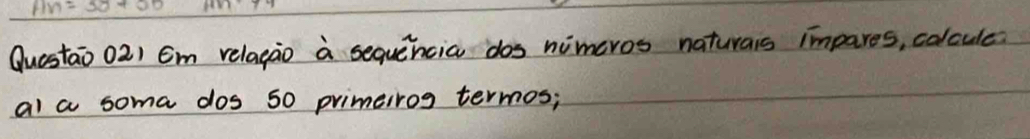 An = 35 + 56
Questão 02) Em relação à sequência dos números naturais ímpares, calcule:
a) a soma dos 50 primeiros termos;